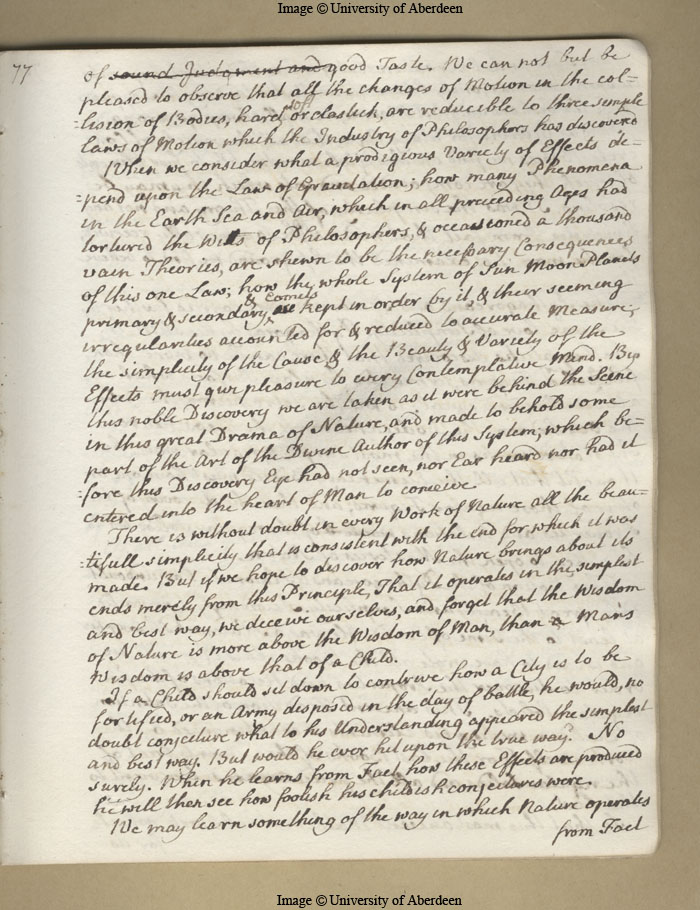 Image © University of Aberdeen
77
of sound Judgment and good Taste. We can not but be
pleased to observe that all the changes of Motion in the col=
=lision of Bodies, hard, soft or elastick, are reducible to three simple
Laws of Motion which the Industry of Philosophers has discovered
When we consider what a prodigious Variety of Effects de=
=pend upon the Law of Gravitation; how many Phenomena
in the Earth Sea and Air, which in all preceding Ages had
tortured the Wits of Philosophers, & occasioned a thousand
vain Theories, are shewn to be the necessary Consequences
of this one Law; how the whole System of Sun Moon Planets
primary & secondary, & Comets are kept in order by it, & their seeming
irregularities accounted for & reduced to accurate Measure;
the simplicity of the Cause & the Beauty & Variety of the
Effects must give pleasure to every Contemplative Mind. By
this noble Discovery we are taken as it were behind the Scene
in this great Drama of Nature, and made to behold some
part of the Art of the Divine Author of this System, which be=
=fore this Discovery Eye had not seen, nor Ear heard nor had it
entered into the heart of Man to conceive.
There is without doubt in every Work of Nature all the beau=
=tifull simplicity that is consistent with the end for which it was
made. But if we hope to discover how Nature brings about its
ends merely from this Principle, That it operates in the simplest
and best way, we deceive ourselves, and forget that the Wisdom
of Nature is more above the Wisdom of Man, than a Mans
Wisdom is above that of a Child.
If a Child should sit down to contrive how a City is to be
fortified, or an Army disposed in the day of battle, he would, no
doubt conjecture what to his Understanding appeared the simplest
and best way. But would he ever hit upon the true way? No
surely. When he learns from Fact how these Effects are produced
he will then see how foolish his childish conjectures were.
We may learn something of the way in which Nature operates
from Fact
Image © University of Aberdeen